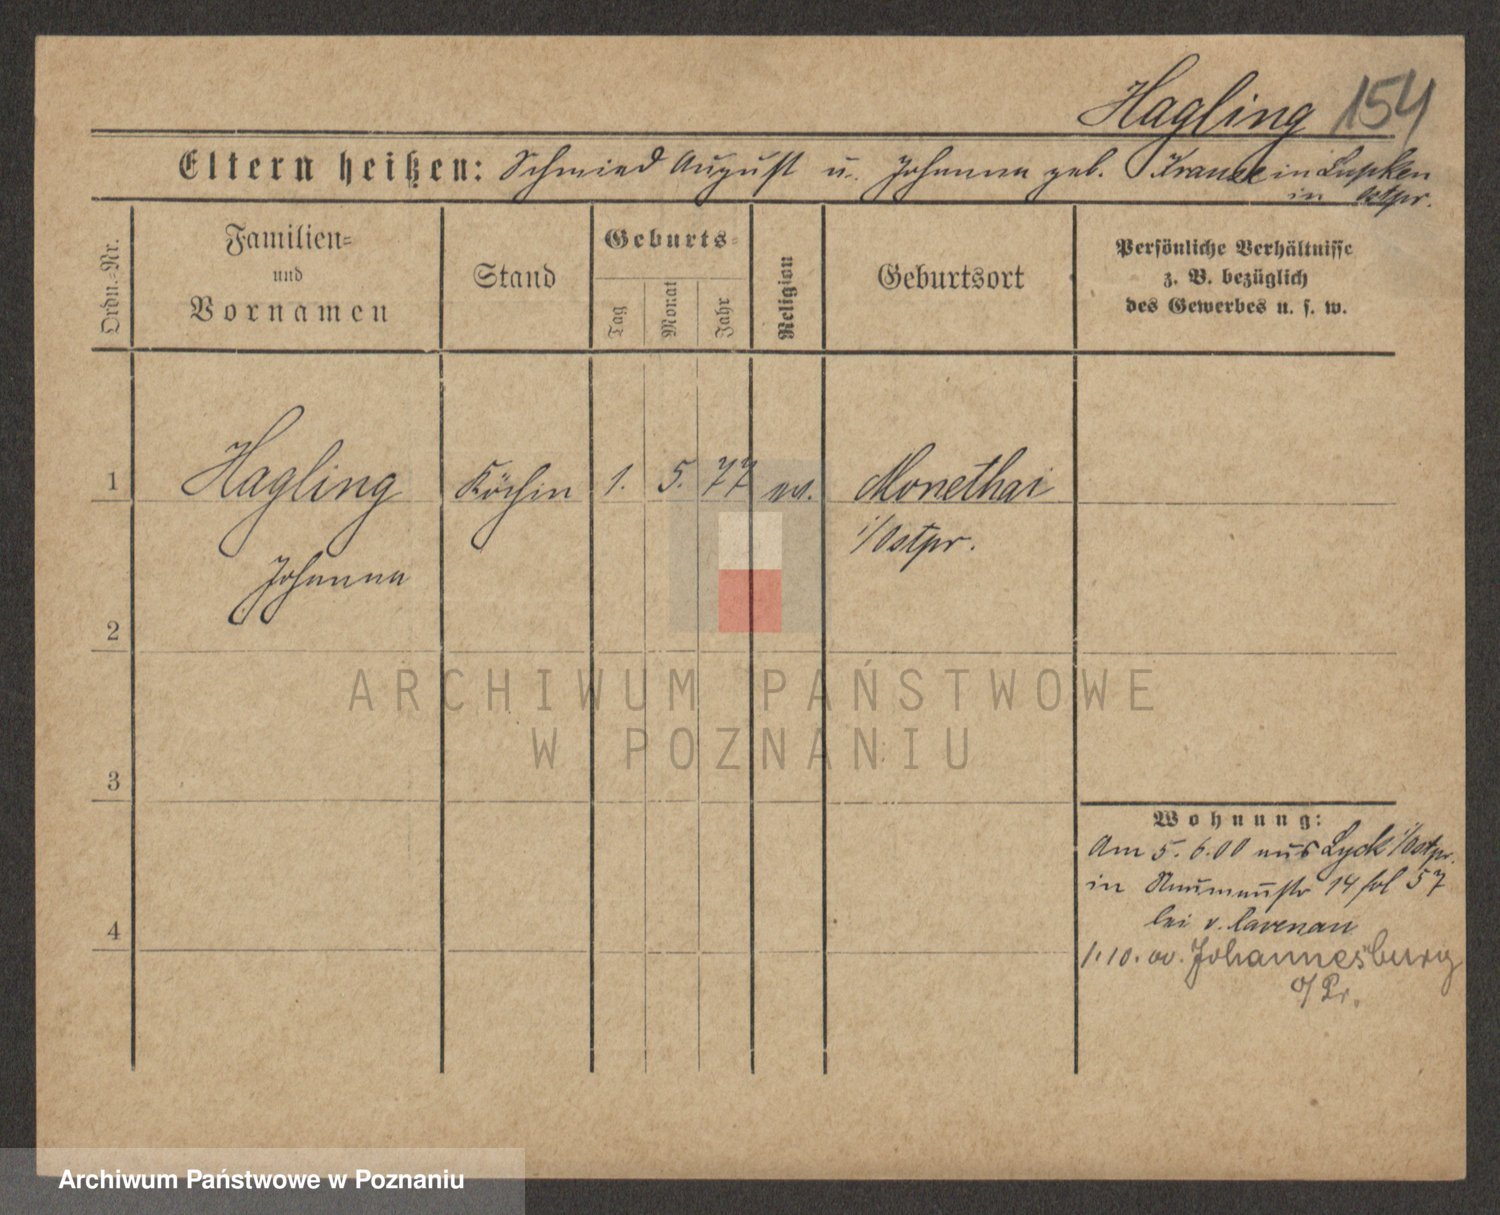 Hagling 154
Eltern heißen: Schmied August u. Johanna geb. Krause in Lupken
in Ostpr.
Ordn.-Nr.
Familien-
und
Vornamen
Stand
Geburts-
Tag
Monat
Jahr
Religion
Geburtsort
Persönliche Verhältnisse
z. B. bezüglich
des Gewerbes u. s. w.
1 Hagling Köchin 1. 5. 77 ev. Monethai
i/Ostpr.
Johanna
2
ARCHIWUM PAŃSTWOWE
W POZNANIU
3
Wohnung:
Am 5.6.00 aus Lyck i/Ostpr.
in Naumannstr 14 fol 57
4
bei v.
1.10. 00. Johannesburg
O/Pr.
Archiwum Państwowe w Poznaniu